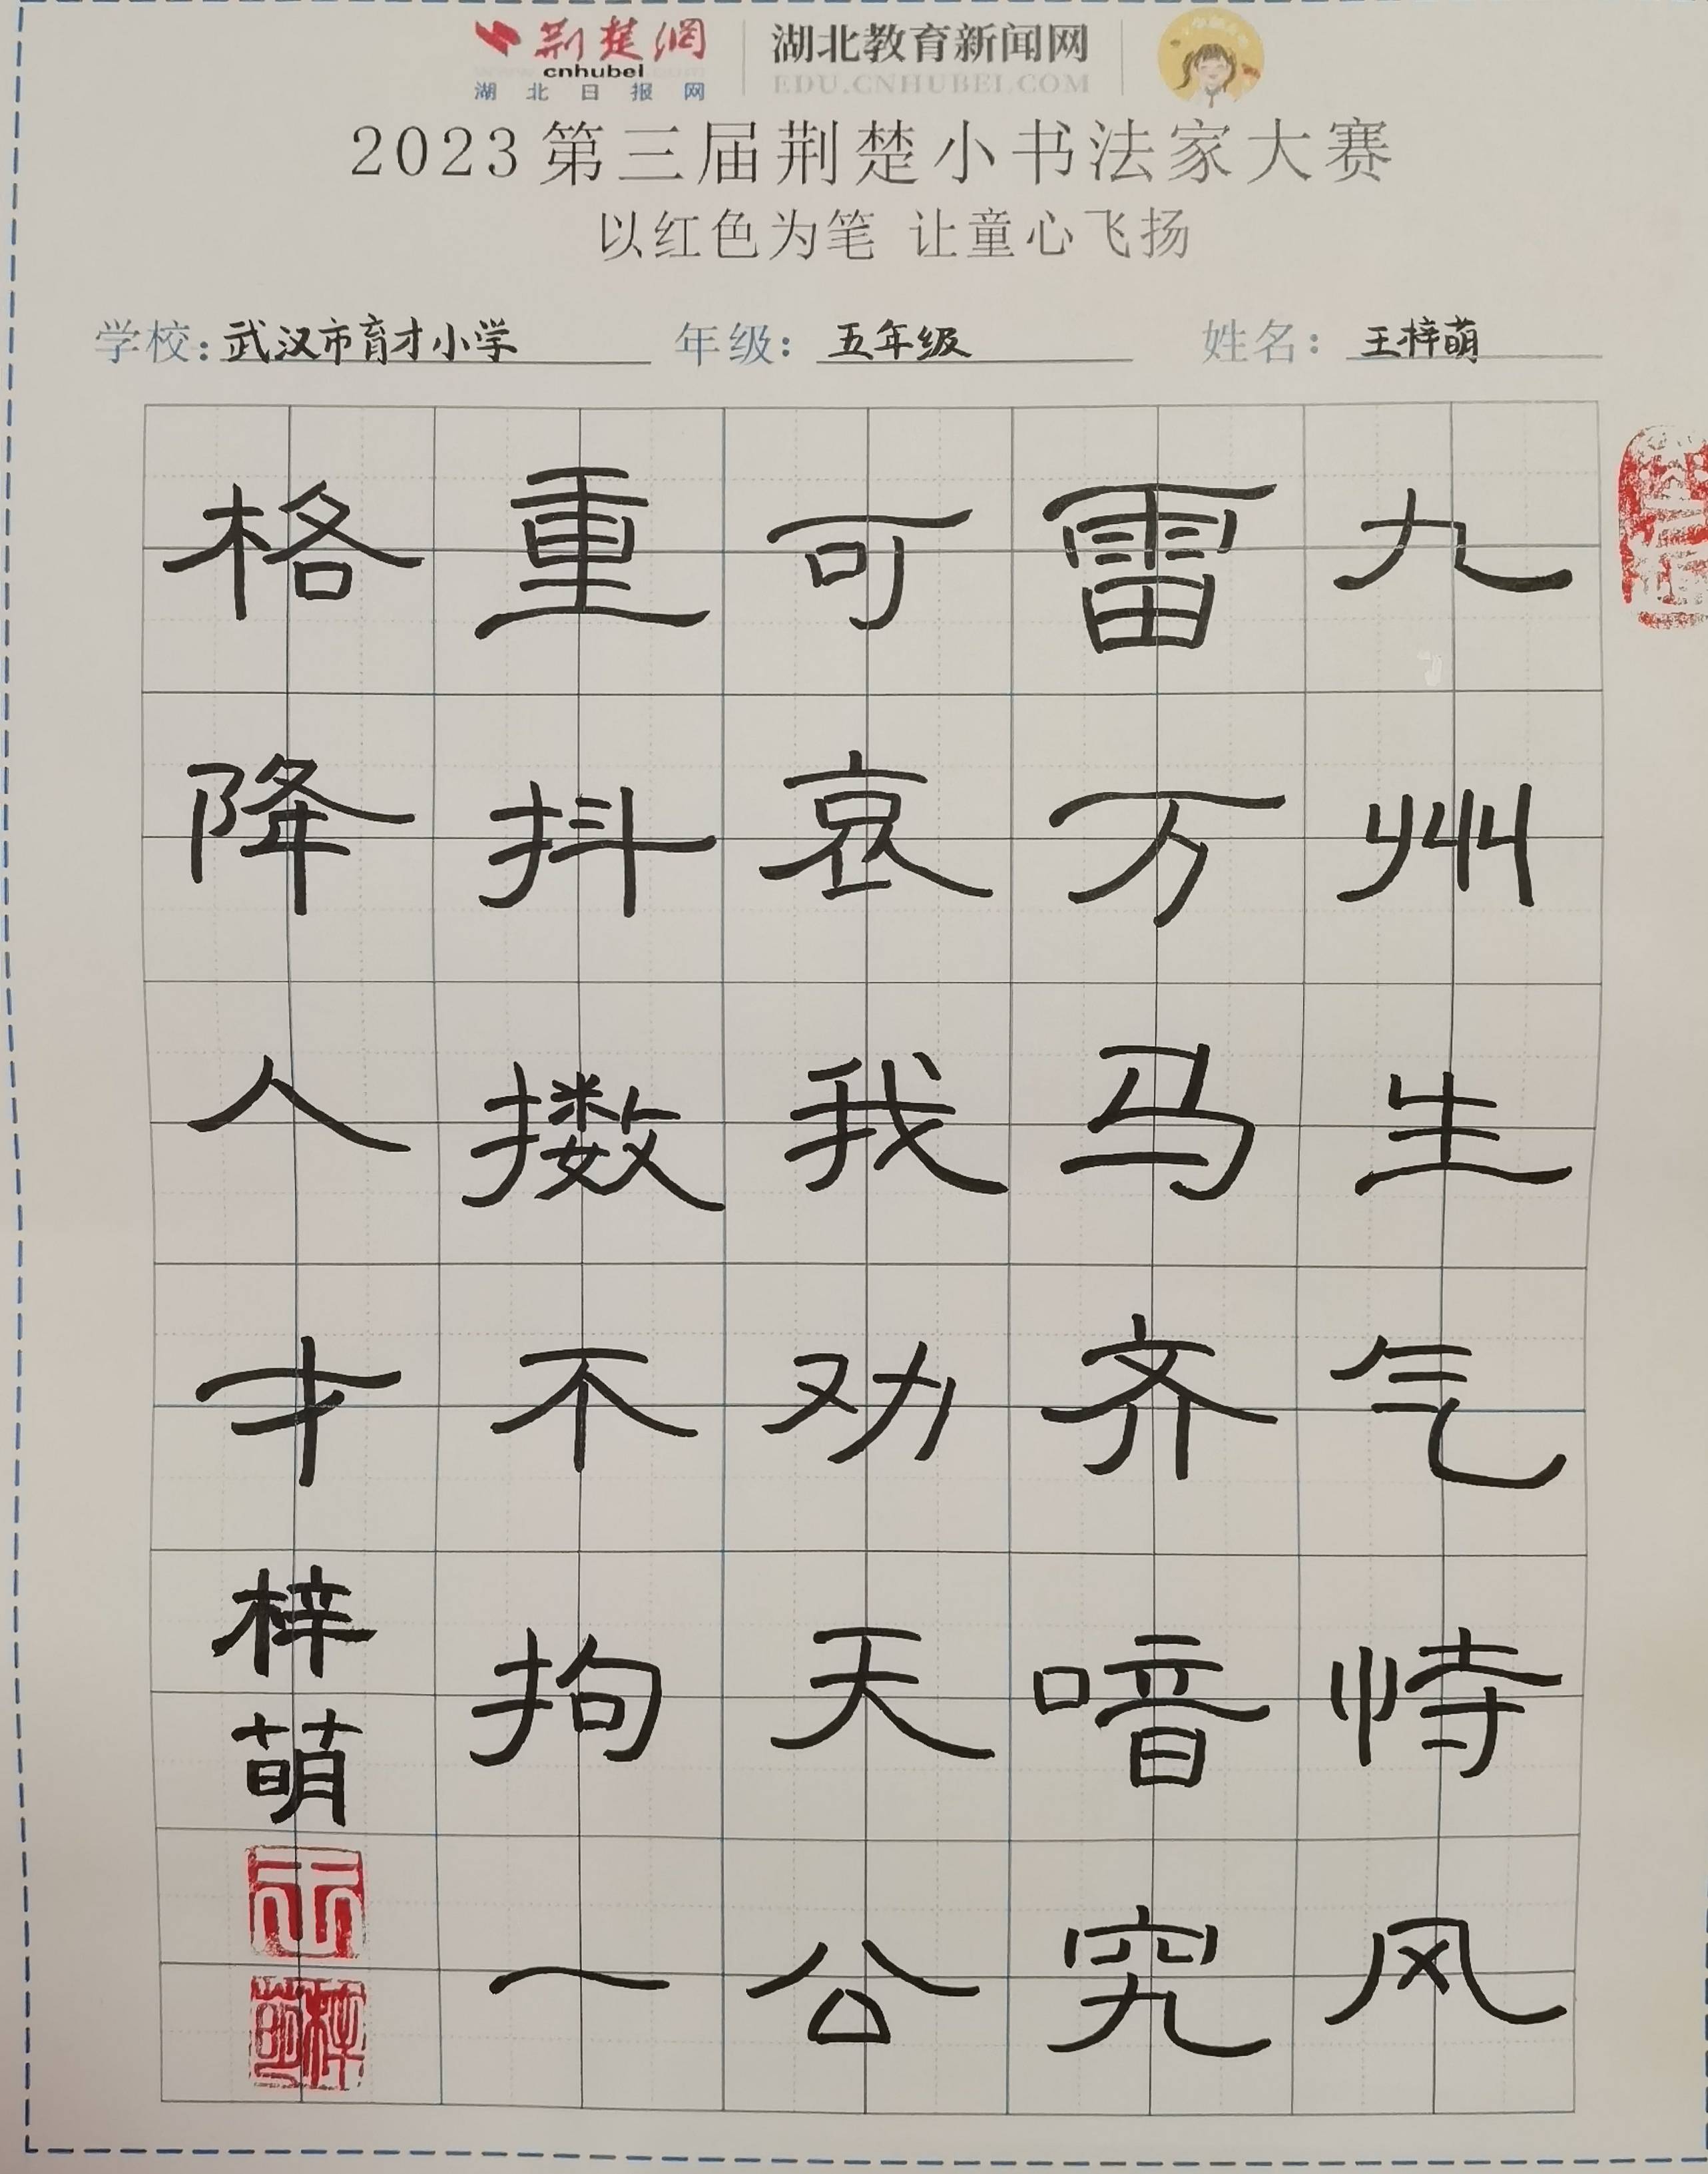 荆楚网
cnhubei
湖北日报网
湖北教育新闻网
EDU.CNHUBEI.COM
2023第三届荆楚小书法家大赛
以红色为笔 让童心飞扬
学校:武汉市育才小学 年级:五年级 姓名:王梓萌
九州生气恃风
雷万马齐喑究
可哀我劝天公
重抖擞不拘一
格降人才
梓萌
梓萌